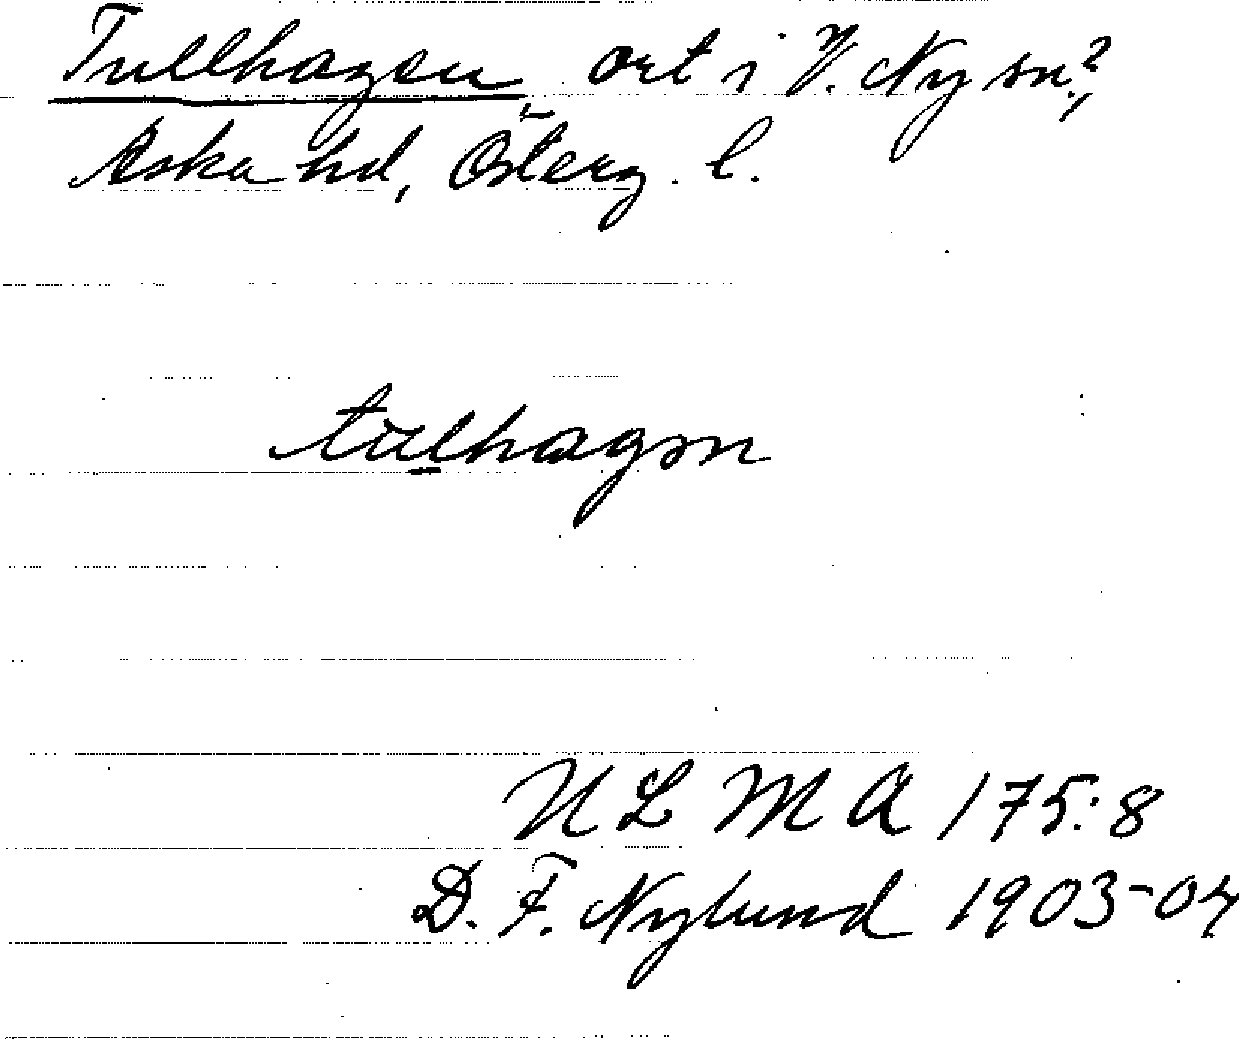 Tullhagen, ort i V. Ny sn?,
Aska hd, Österg. l.
tullhagən
ULMA 175:8
D. F. Nylund 1903-04